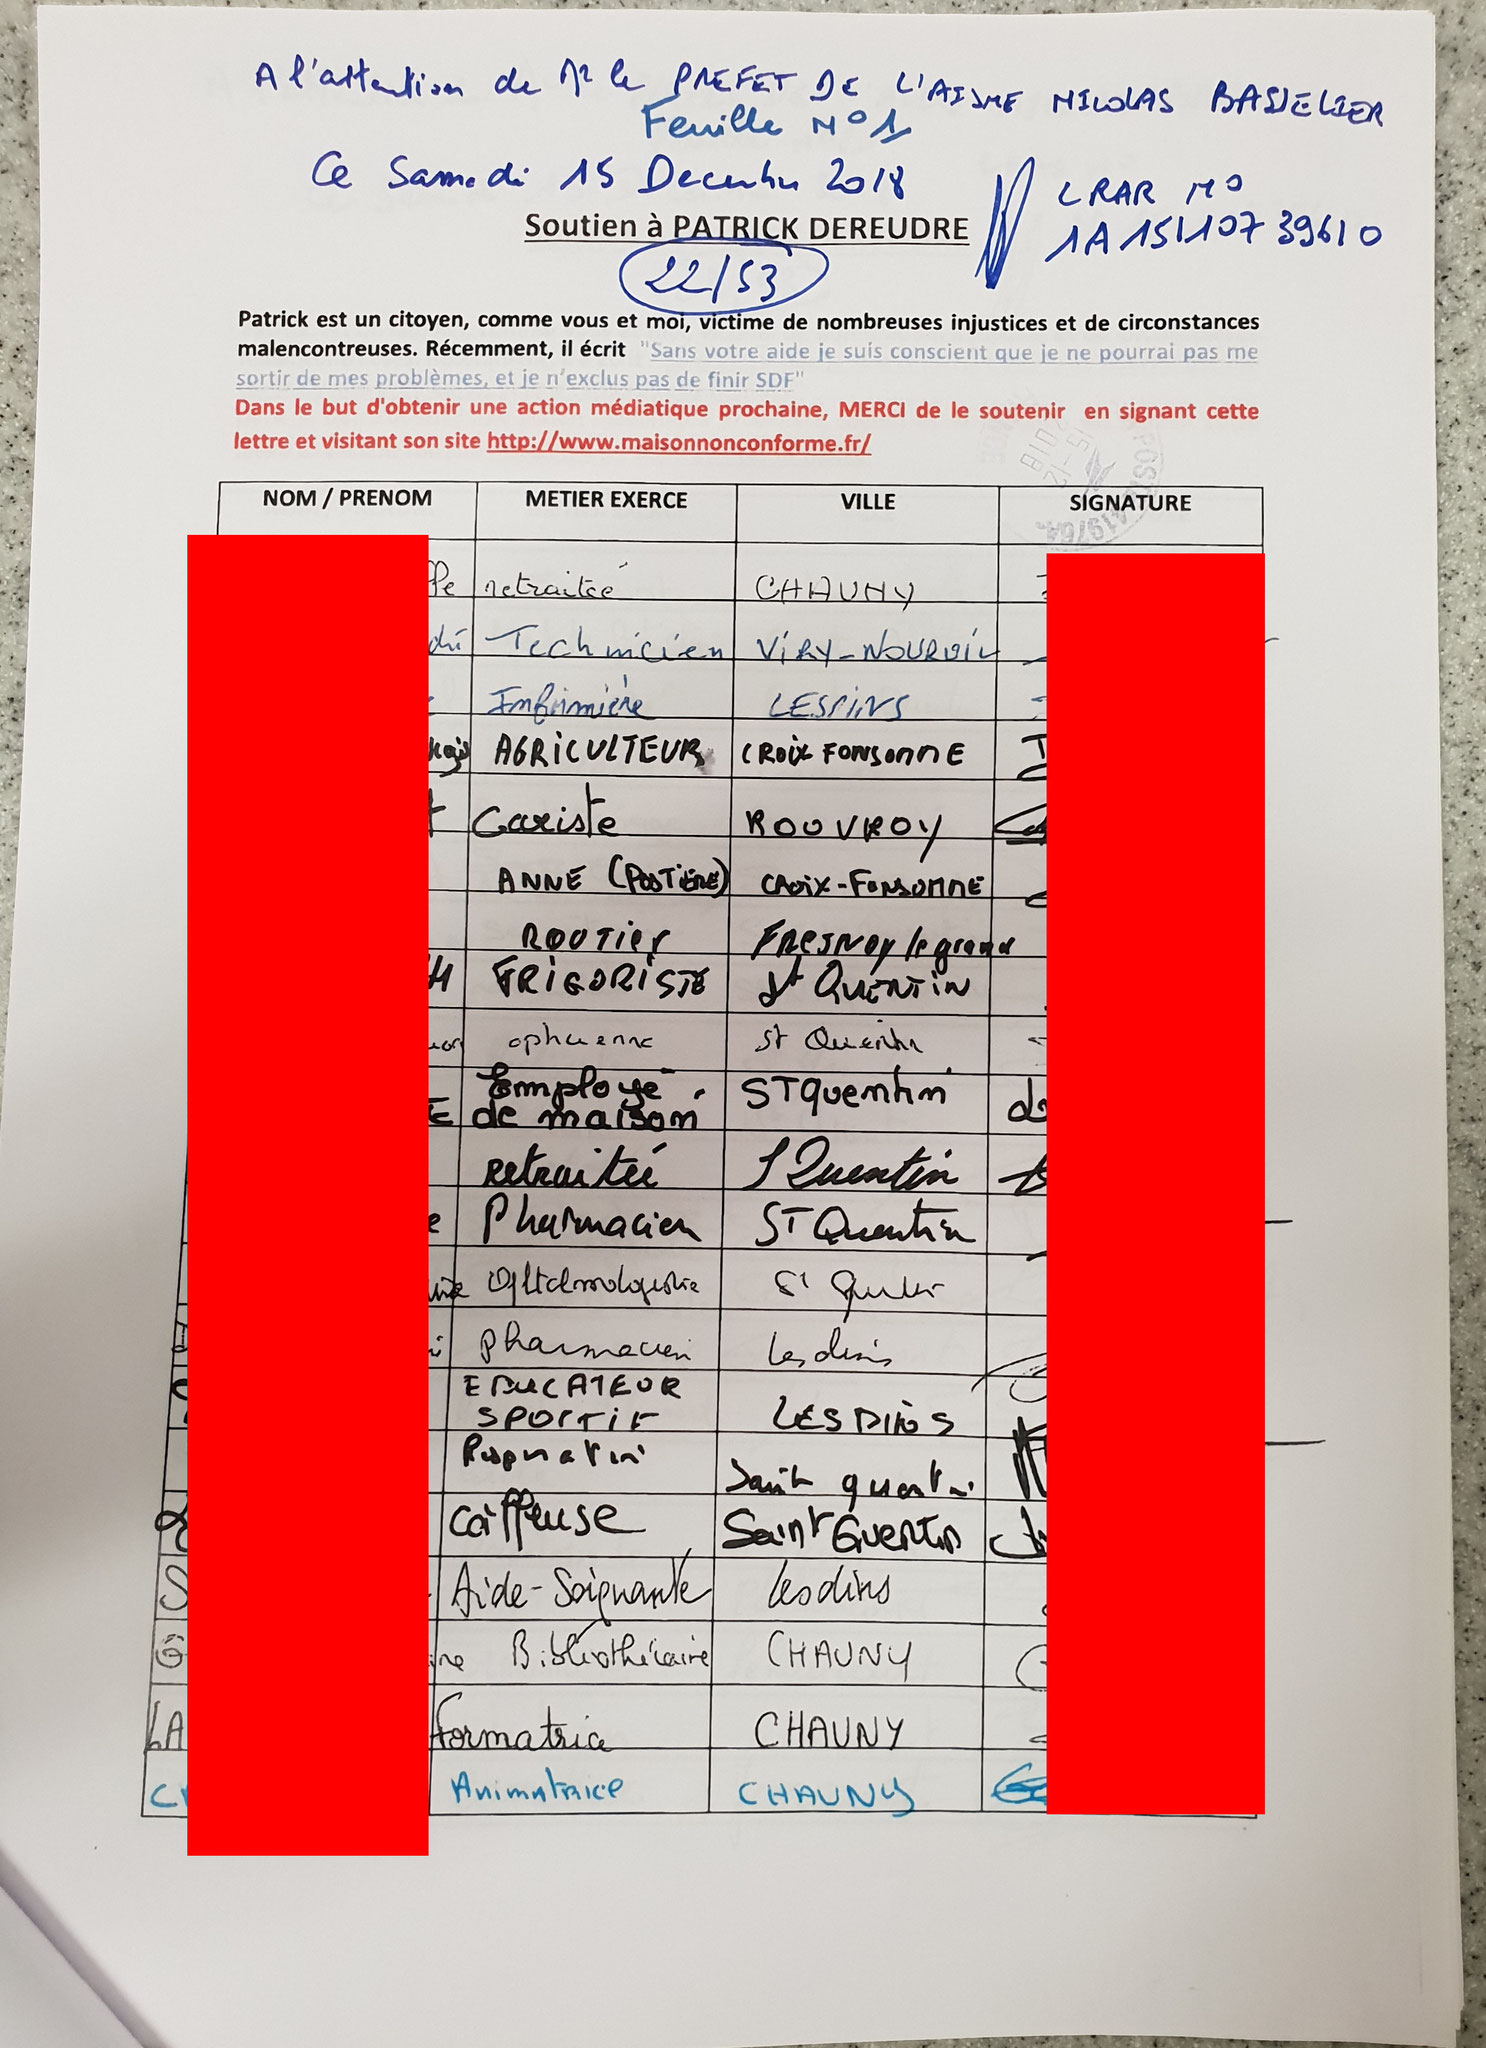 A l'attention de Mr le PREFET DE L'AISNE NICOLAS BASSELIER
Feuille N°1
Ce Samedi 15 Decembre 2018
LRAR N°
1A 151 107 3961 0
Soutien à PATRICK DEREUDRE
22/53
Patrick est un citoyen, comme vous et moi, victime de nombreuses injustices et de circonstances
malencontreuses. Récemment, il écrit "Sans votre aide je suis conscient que je ne pourrai pas me
sortir de mes problèmes, et je n'exclus pas de finir SDF"
Dans le but d'obtenir une action médiatique prochaine, MERCI de le soutenir en signant cette
lettre et visitant son site http://www.maisonnonconforme.fr/
NOM / PRENOM METIER EXERCE VILLE SIGNATURE
retraiteé CHAUNY
Technicien VIRY-NOUROIL
Infirmière
AGRICULTEUR CROIX FONSOMME
Cariste ROUVROY
ANNE (POSTIERE) CROIX-FONSOMME
ROUTIER FRESNOY le grand
FRIGORISTE St QUENTIN
St Quentin
Employé
de maison ST Quentin
retraitéé St Quentin
Pharmacien ST Quentin
St Quentin
pharmacien Lesdins
EDUCATEUR
SPORTIF LESDINS
Saint quentin
Coiffeuse Saint Quentin
Aide-Soignante Lesdins
Bibliothécaire CHAUNY
LA formatrice CHAUNY
Animatrice CHAUNY